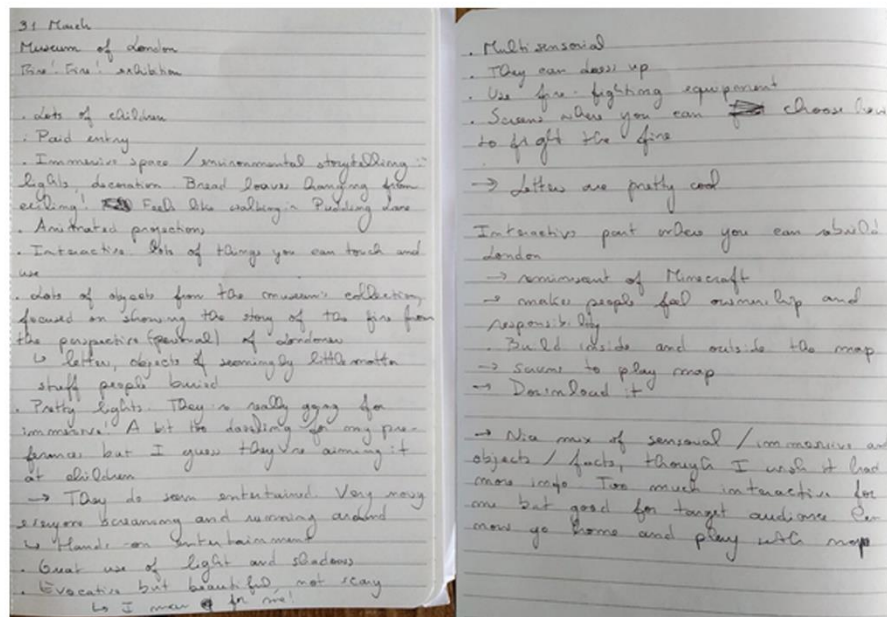 31 March
Museum of London
Fire! Fire! exhibition
. Lots of children
. Paid entry
. Immersive space / environmental storytelling :
lights, decoration. Bread loaves hanging from
ceiling! Feel like walking in Pudding Lane
. Animated projections
. Interactive lots of things you can touch and
use
. Lots of objects from the museum's collection,
focused on showing the story of the fire from
the perspective (personal) of Londoners
↳ letter, objects of seemingly little matter
stuff people buried
. Pretty lights. They're really going for
immersive! A bit too dazzling for my pre-
ference but I guess they're aiming it
at children
→ They do seem entertained. Very noisy
everyone screaming and running around
↳ Hands-on entertainment
. Great use of light and shadows
. Evocative but beautiful, not scary
↳ I mean for me!
. Multisensorial
. They can dress up
. Use fire-fighting equipment
. Screens where you can choose how
to fight the fire
→ Letters are pretty cool
Interactive part where you can rebuild
London
→ reminiscent of Minecraft
→ makes people feel ownership and
responsibility
. Build inside and outside the map
→ Screens to play map
→ Download it
→ Nice mix of sensorial / immersive and
objects / facts, though I wish it had
more info. Too much interactive for
me but good for target audience. Can
now go home and play with map